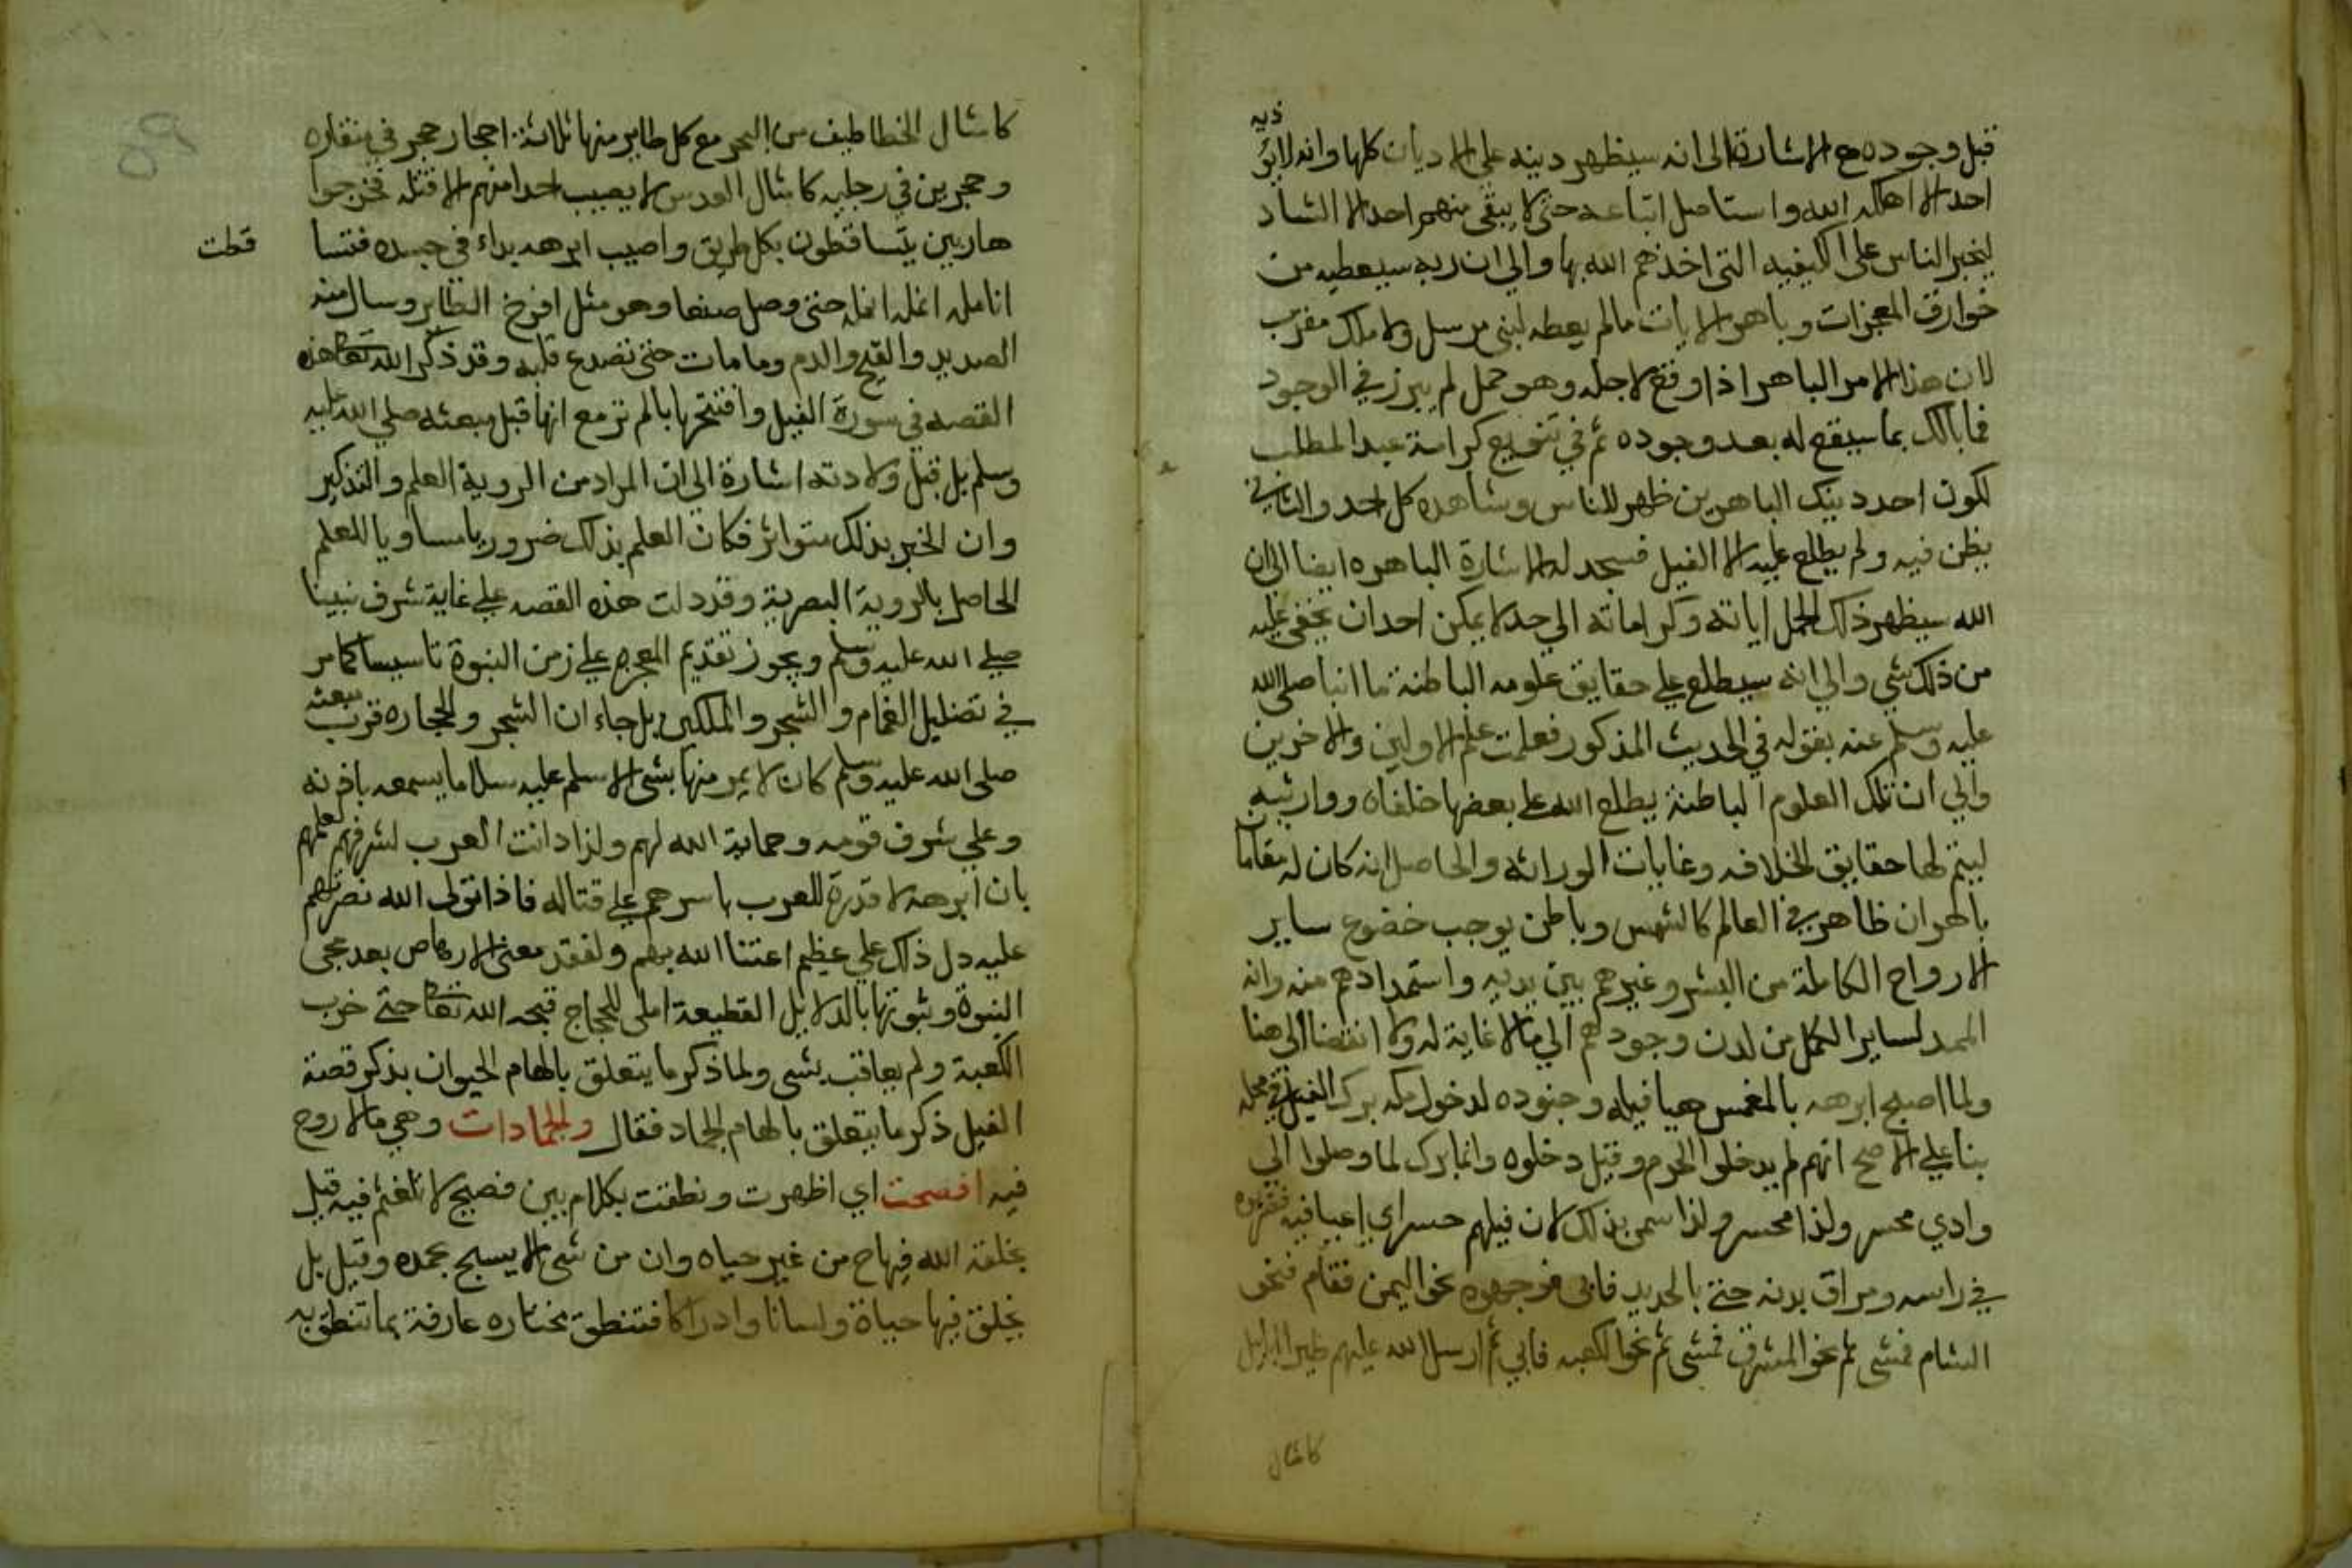 قبل وجوده مع الاشارة الى انه سيظهر دينه على الاديان كلها وانه لا يؤذيه
احد الا اهلكه الله واستاصل اتباعه حتى لا يبقى منهم احد الا الشاد
ليخبر الناس على الكيفيه التي اخذهم الله بها والي ان ربه سيعطيه من
خوارق المعجزات وباهر الايات مالم يعطه لنبي مرسل ولا ملك مقرب
لان هذا الامر الباهر اذا وقع لاجله وهو حمل لم يبرز في الوجود
فما بالك بما سيقع له بعد وجوده ثم في تنويع كرامة عبد المطلب
لكون احد دينك الباهرين ظهر للناس وشاهده كل احد والثاني
بطن فيه ولم يطلع عليه الا الفيل فسجد له الاشارة الباهره ايضا الي ان
الله سيظهر ذلك الحمل اياته وكراماته الي حد لا يمكن احدا ان يخفي عليه
من ذلك شي والي انه سيطلع علي حقايق علومه الباطنة ما انبا صلى الله
عليه وسلم عنه بقوله في الحديث المذكور فعلمت علم الاولين والاخرين
والي ان تلك العلوم الباطنة يطلع الله على بعضها خلفاه ووارثيه
ليتم لها حقايق الخلافه وغايات الوراثه والحاصل انه كان له مقاما
باهران ظاهر في العالم كالشمس وباطن يوجب خضوع ساير
الارواح الكاملة من البشر وغيرهم بين يديه واستمدادهم منه وانه
الممد لساير الكمل من لدن وجودهم الي مالا غاية له ولا انقضا الى هنا
ولما اصبح ابرهه بالمغمس هيا فيله وجنوده لدخول مكه برك الفيل في محله
بنا علي الاصح انهم لم يدخلوا الحرم وقيل دخلوه وانما برك لما وصلوا الي
وادي محسر ولذا سمى بذلك لان فيلهم حسر اي اعيا فيه فضربوه
في راسه ومراق بدنه حتي بالحديد فابى فوجهوه نحو اليمن فقام فنحو
الشام فمشى ثم نحو المشرق فمشى ثم نحو الكعبه فابي ثم ارسل الله عليهم طيرا ابابيل
كامثال
كامثال الخطاطيف من البحر مع كل طاير منها ثلاثة احجار حجر في منقاره
وحجرين في رجليه كامثال العدس لا يصيب احدا منهم الا قتله فخرجوا
هاربين يتساقطون بكل طريق واصيب ابرهه بداء في جسده فتسا
قطت
انامله انملة انملة حتى وصل صنعا وهو مثل افرخ الطاير وسال منه
الصديد والقيح والدم وما مات حتى تصدع قلبه وقد ذكر الله تعالى هذه
القصه في سورة الفيل وافتتحها بالم تر مع انها قبل مبعثه صلي الله عليه
وسلم بل قبل ولادته اشارة الي ان المراد من الروية العلم والتذكير
وان الخبر بذلك متواتر فكان العلم بذلك ضروريا مساويا للعلم
الحاصل بالروية البصرية وقد دلت هذه القصه علي غاية شرف نبينا
صلي الله عليه وسلم ويجوز تقديم المعجزه علي زمن النبوة تاسيسا كما مر
في تضليل الغمام والشجر والملكين بل جاء ان الشجر والحجاره قرب مبعثه
صلى الله عليه وسلم كان لا يمر منها بشي الا سلم عليه سلاما يسمعه باذنه
وعلي شرف قومه وحماية الله لهم ولذا دانت العرب لشرفهم لعلمهم
بان ابرهه لا قدرة للعرب باسرهم علي قتاله فاذا تولى الله نصرتهم
عليه دل ذلك علي عظيم اعتنا الله بهم ولفقد معنى الارهاص بعد مجي
النبوة وثبوتها بالدلايل القطيعة املى للحجاج قبحه الله تعالى حتى خرب
الكعبة ولم يعاقب بشي ولما ذكر ما يتعلق بالهام الحيوان بذكر قصة
الفيل ذكر ما يتعلق بالهام الجماد فقال والجمادات وهي مالا روح
فيه افصحت اي اظهرت ونطقت بكلام بين فصيح لا تلغثم فيه قيل
بخلقة الله فيها ح من غير حياه وان من شي الا يسبح بحمده وقيل بل
يخلق فيها حياة ولسانا وادراكا فتنطق مختاره عارفة بما تنطق به